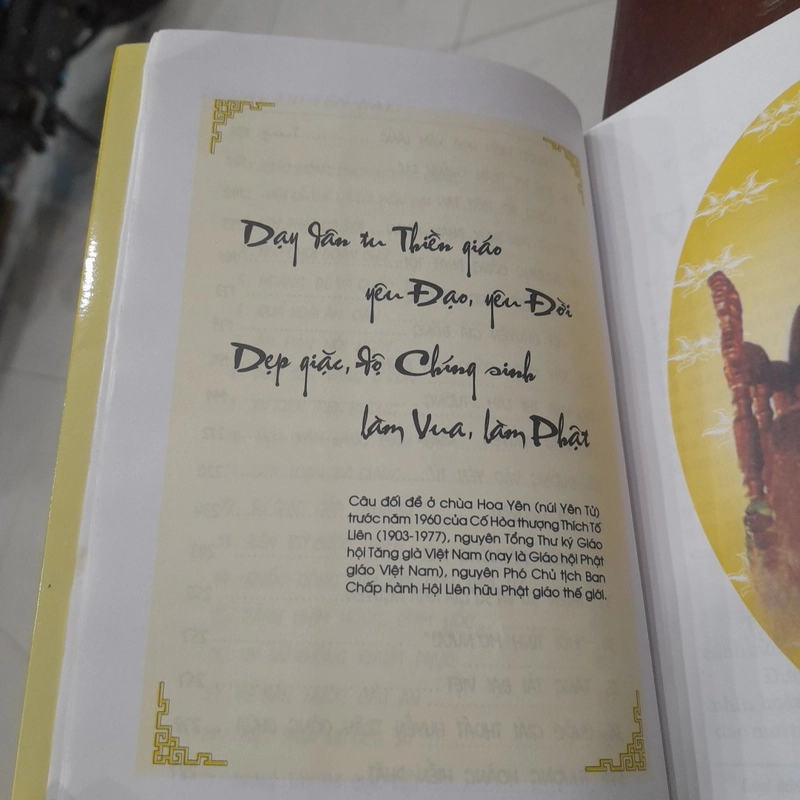 Dạy dân tu Thiền giáo
yêu Đạo, yêu Đời
Dẹp giặc, độ Chúng sinh
làm Vua, làm Phật
Câu đối đề ở chùa Hoa Yên (núi Yên Tử)
trước năm 1960 của Cố Hòa thượng Thích Tố
Liên (1903-1977), nguyên Tổng Thư ký Giáo
hội Tăng già Việt Nam (nay là Giáo hội Phật
giáo Việt Nam), nguyên Phó Chủ tịch Ban
Chấp hành Hội Liên hữu Phật giáo thế giới.